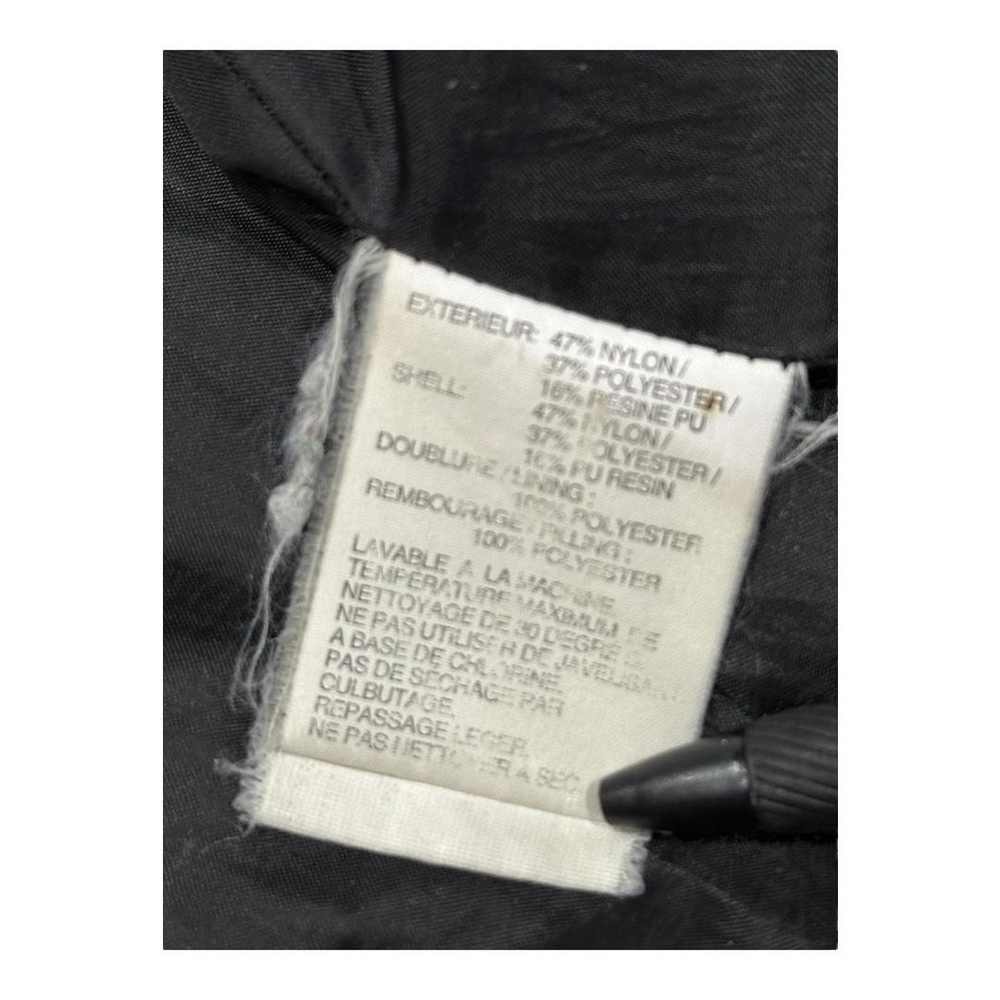 EXTERIEUR: 47% NYLON /
37% POLYESTER /
16% RESINE PU
SHELL: 47% NYLON /
37% POLYESTER /
16% PU RESIN
DOUBLURE / LINING :
100% POLYESTER
REMBOURAGE / FILLING :
100% POLYESTER
LAVABLE A LA MACHINE
TEMPERATURE MAXIMUM DE
NETTOYAGE DE 30 DEGRE
NE PAS UTILISER DE JAVELISANT
A BASE DE CHLORINE.
PAS DE SECHAGE PAR
CULBUTAGE.
REPASSAGE LEGER.
NE PAS NETTOYER A SEC